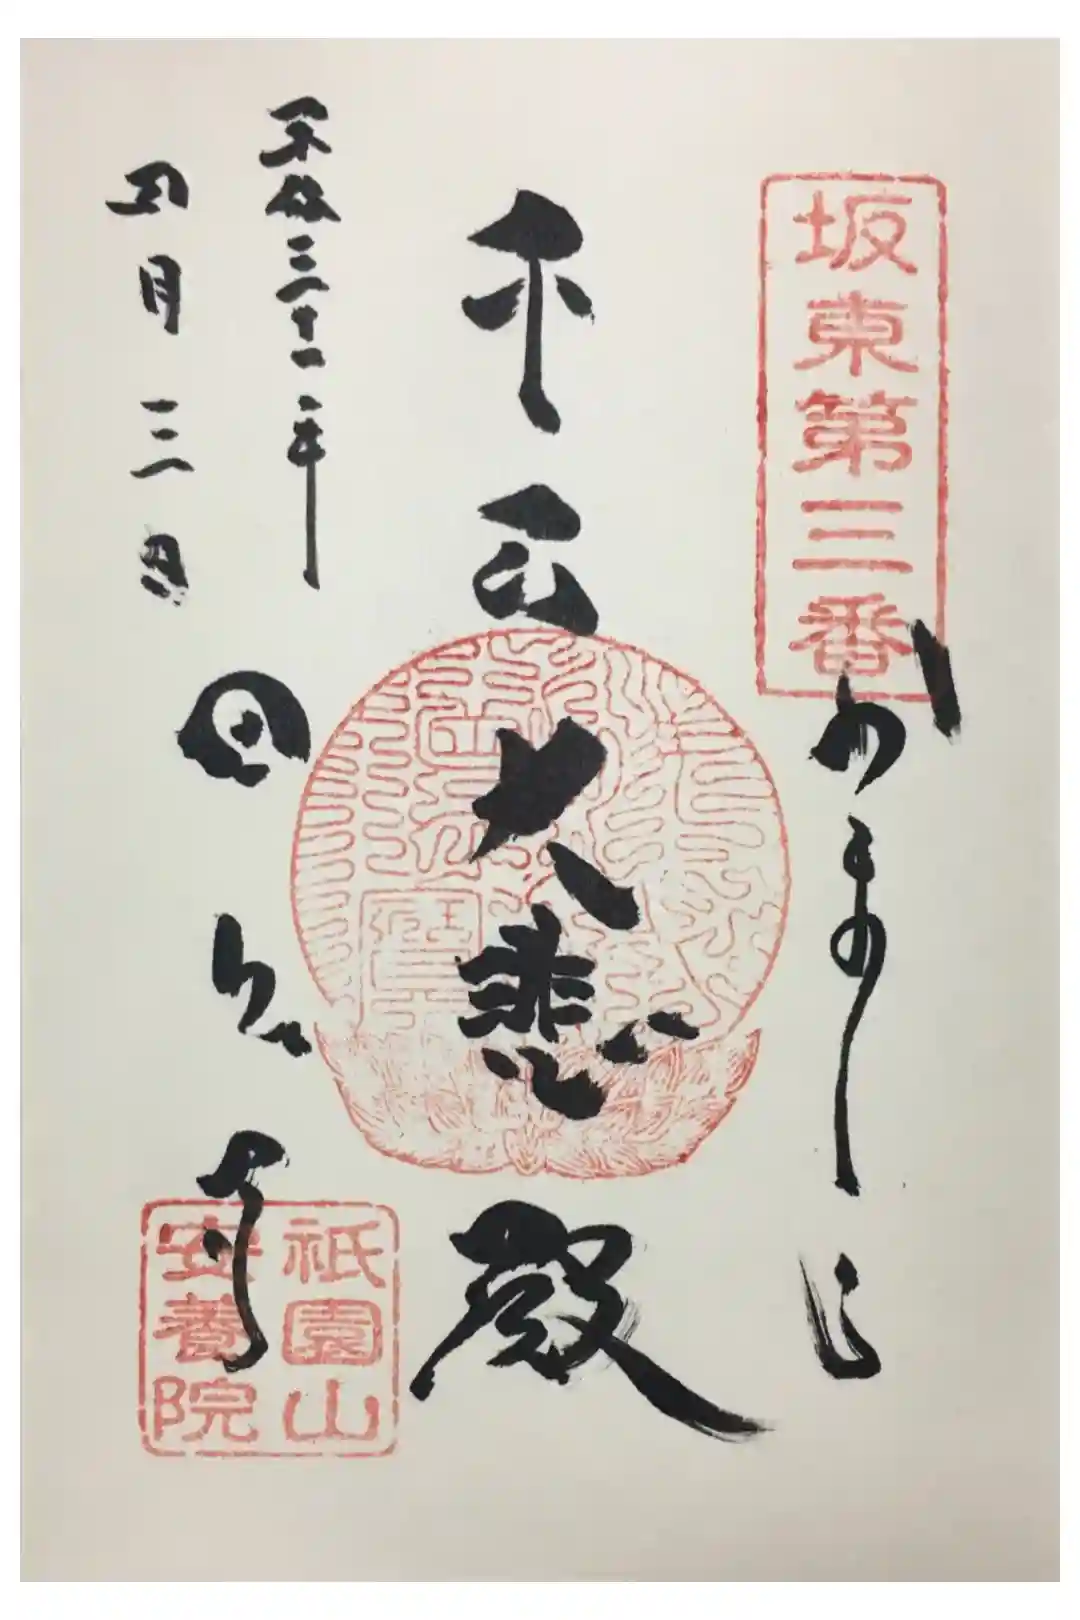 坂東第三番
かまくら
千手大悲殿
平成三十一年
四月三日
田代寺
祇園山
安養院